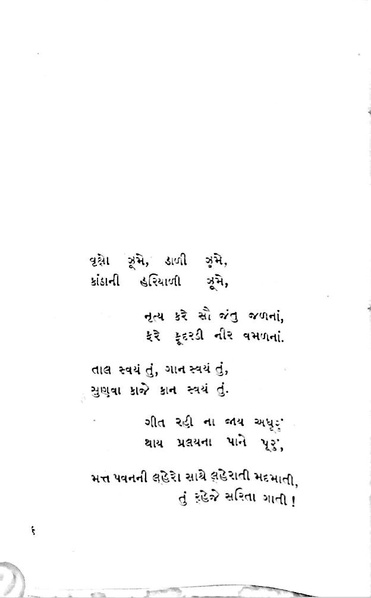 વૃક્ષો ઝૂમે, ડાળી ઝૂમે,
કાંઠાની હરિયાળી ઝૂમે,
નૃત્ય કરે સૌ જંતુ જળનાં,
ફરે ફૂદરડી નીર વમળનાં.
તાલ સ્વયં તું, ગાન સ્વયં તું,
સુણવા કાજે કાન સ્વયં તું.
ગીત રહી ના જાય અધૂરું
થાય પ્રલયના પાને પૂરું,
મત્ત પવનની લહેરો સાથે લહેરાતી મદમાતી,
તું રહેજે સરિતા ગાતી !
૬